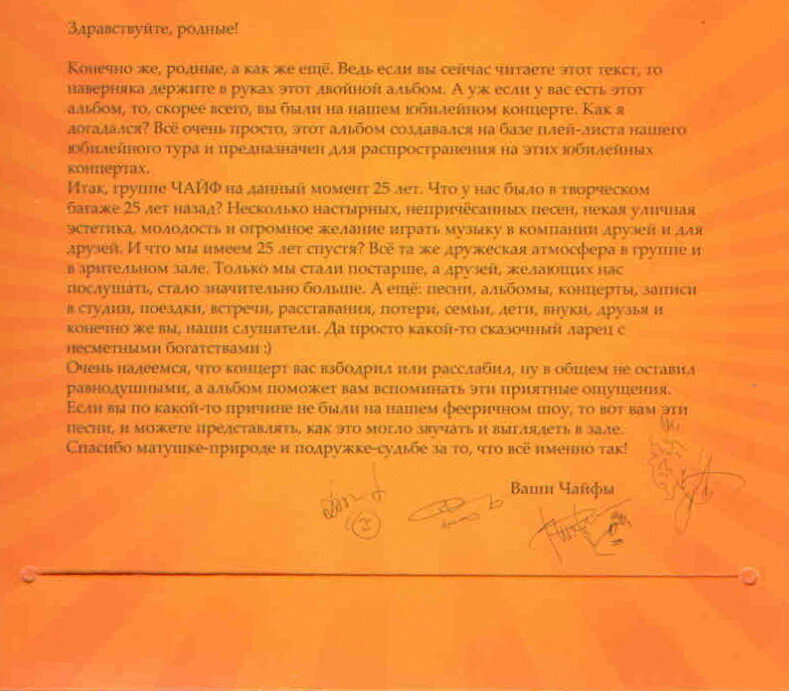 Здравствуйте, родные!
Конечно же, родные, а как же ещё. Ведь если вы сейчас читаете этот текст, то
наверняка держите в руках этот двойной альбом. А уж если у вас есть этот
альбом, то, скорее всего, вы были на нашем юбилейном концерте. Как я
догадался? Всё очень просто, этот альбом создавался на базе плей-листа нашего
юбилейного тура и предназначен для распространения на этих юбилейных
концертах.
Итак, группе ЧАЙФ на данный момент 25 лет. Что у нас было в творческом
багаже 25 лет назад? Несколько настырных, непричёсанных песен, некая уличная
эстетика, молодость и огромное желание играть музыку в компании друзей и для
друзей. И что мы имеем 25 лет спустя? Всё та же дружеская атмосфера в группе и
в зрительном зале. Только мы стали постарше, а друзей, желающих нас
послушать, стало значительно больше. А ещё: песни, альбомы, концерты, записи
в студии, поездки, встречи, расставания, потери, семьи, дети, внуки, друзья и
конечно же вы, наши слушатели. Да просто какой-то сказочный ларец с
несметными богатствами :)
Очень надеемся, что концерт вас взбодрил или расслабил, ну в общем не оставил
равнодушными, а альбом поможет вам вспоминать эти приятные ощущения.
Если вы по какой-то причине не были на нашем фееричном шоу, то вот вам эти
песни, и можете представлять, как это могло звучать и выглядеть в зале.
Спасибо матушке-природе и подружке-судьбе за то, что всё именно так!
Ваши Чайфы